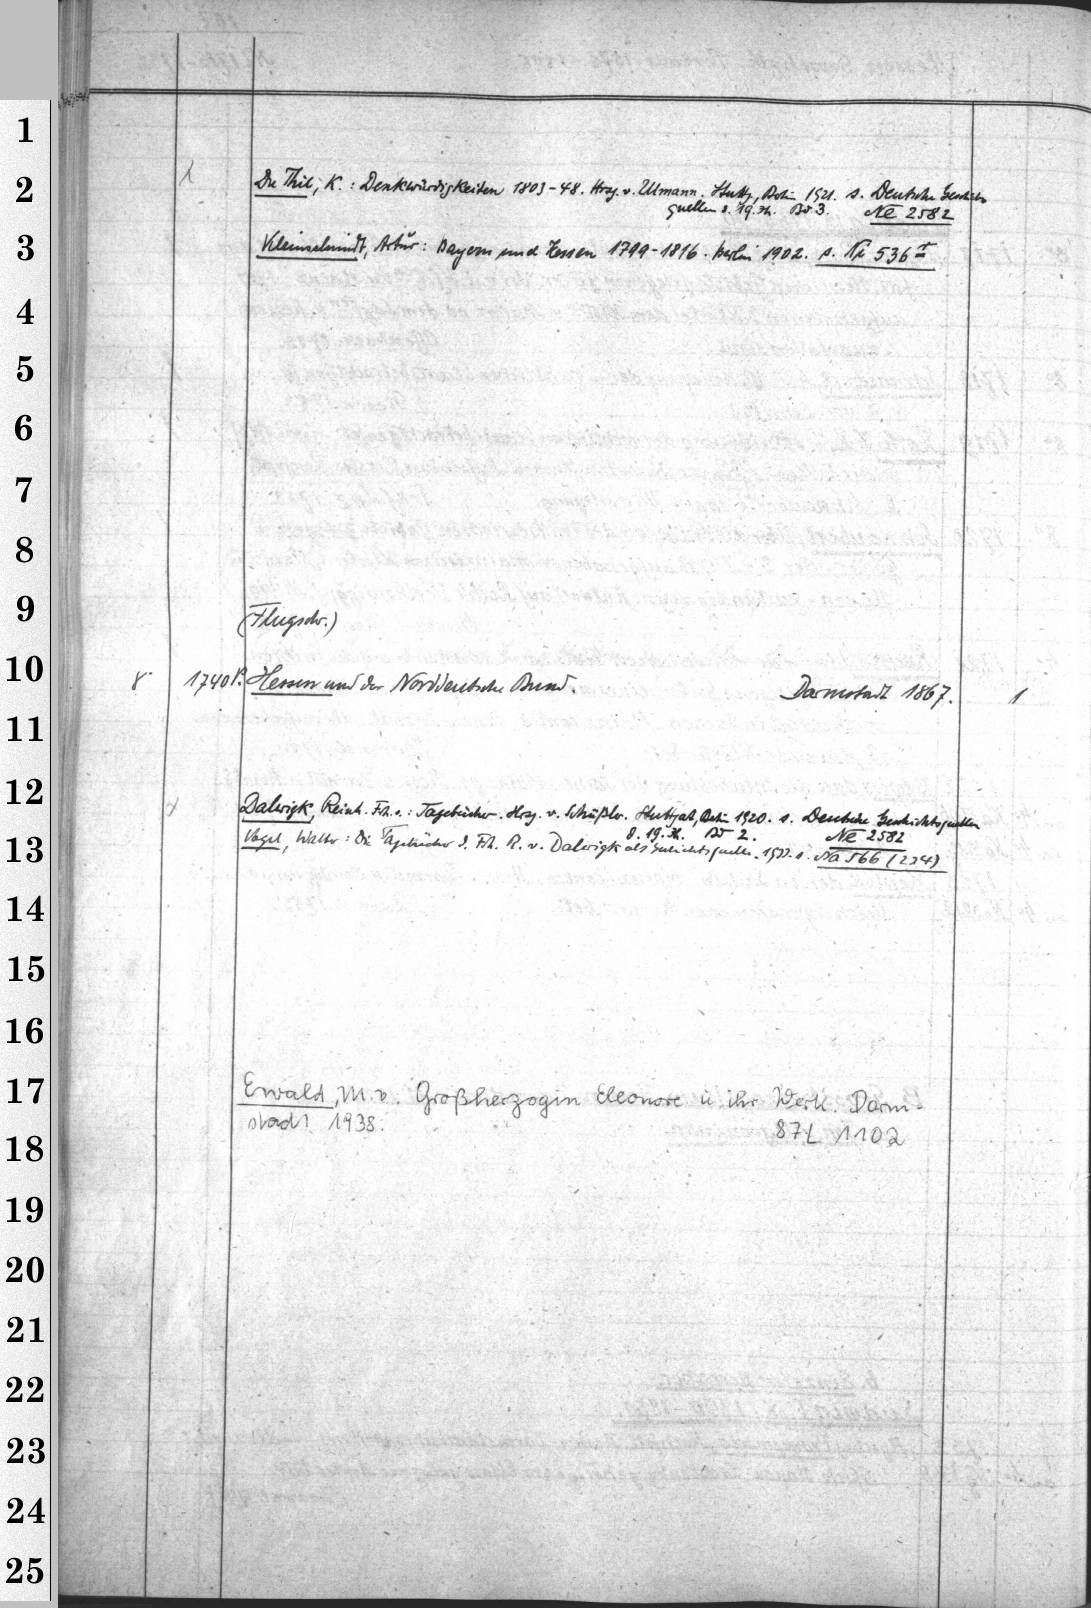 1
2
3
4
5
6
7
8
9
10
11
12
13
14
15
16
17
18
19
20
21
22
23
24
25
Du Thil, K.: Denkwürdigkeiten 1803-48. Hrsg. v. Ulmann. Stuttg., Berlin 1921. s. Deutsche Geschichts
quellen d. 19. Jh. Bd 3. Ne 2582
Kleinschmidt, Artur: Bayern und Hessen 1799-1816. Berlin 1902. s. Ni 536
(Flugschr.)
8° 1740 Hessen und der Norddeutsche Bund. Darmstadt 1867. 1
Dalwigk, Reinh. Frh. v.: Tagebücher. Hrsg. v. Schüßler. Stuttgart, Berlin 1920. s. Deutsche Geschichtsquellen
d. 19. Jh. Bd 2. Ne 2582
Vogel, Walter: Die Tagebücher d. Frh. R. v. Dalwigk als Geschichtsquelle. 1933. s. Na 566 (234)
Ewald, M. v. Großherzogin Eleonore u. ihr Werk. Darm-
stadt 1938. 87L 1102